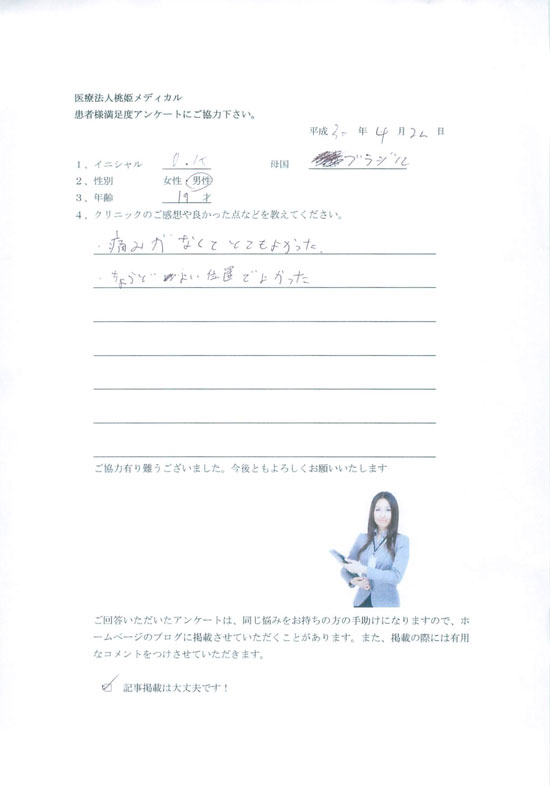 医療法人桃姫メディカル
患者様満足度アンケートにご協力下さい。
平成 30 年 4 月 20 日
1、イニシャル 母国 ブラジル
2、性別 女性・男性
3、年齢 19 才
4、クリニックのご感想や良かった点などを教えてください。
・痛みがなくてとてもよかった。
・ちょうどよい位置でよかった
ご協力有り難うございました。今後ともよろしくお願いいたします
ご回答いただいたアンケートは、同じ悩みをお持ちの方の手助けになりますので、ホ
ームページのブログに掲載させていただくことがあります。また、掲載の際には有用
なコメントをつけさせていただきます。
記事掲載は大丈夫です！